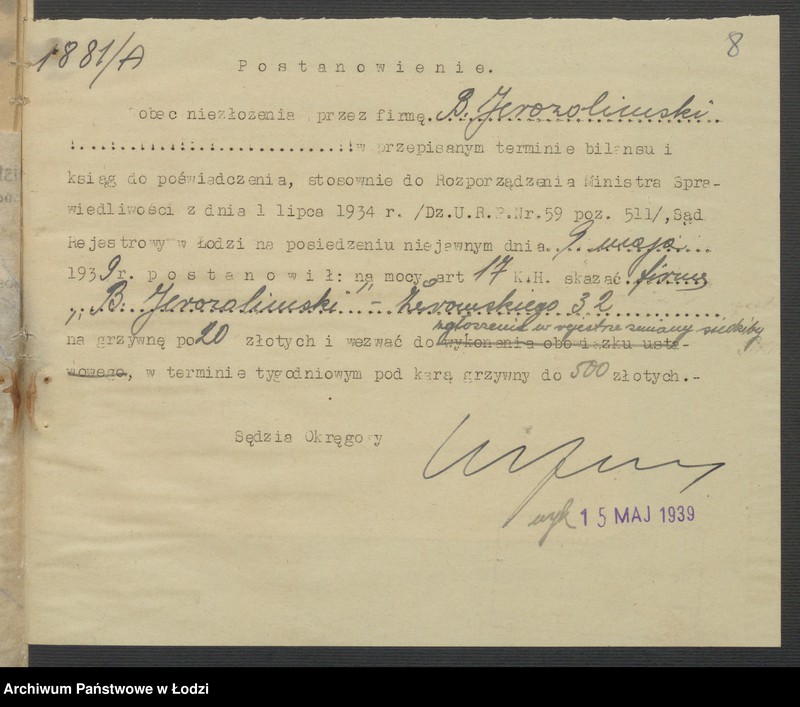 1881/A
8
Postanowienie.
obec niezłożenia przez firmę B. Jerozolimski
w przepisanym terminie bilansu i
ksiąg do poświadczenia, stosownie do Rozporządzenia Ministra Spra-
wiedliwości z dnia 1 lipca 1934 r. /Dz.U.R.P.Nr.59 poz. 511/, Sąd
Rejestrowy w Łodzi na posiedzeniu niejawnym dnia 9 maja
1939 r. postanowił: na mocy art 17 K.H. skazać firmę
"B. Jerozolimski" - Żeromskiego 32
zgłoszenia w rejestrze zmiany siedziby
na grzywnę po 20 złotych i wezwać do wykonania obowiązku usta-
wowego, w terminie tygodniowym pod karą grzywny do 500 złotych.-
Sędzia Okręgowy
wyk 15 MAJ 1939
Archiwum Państwowe w Łodzi